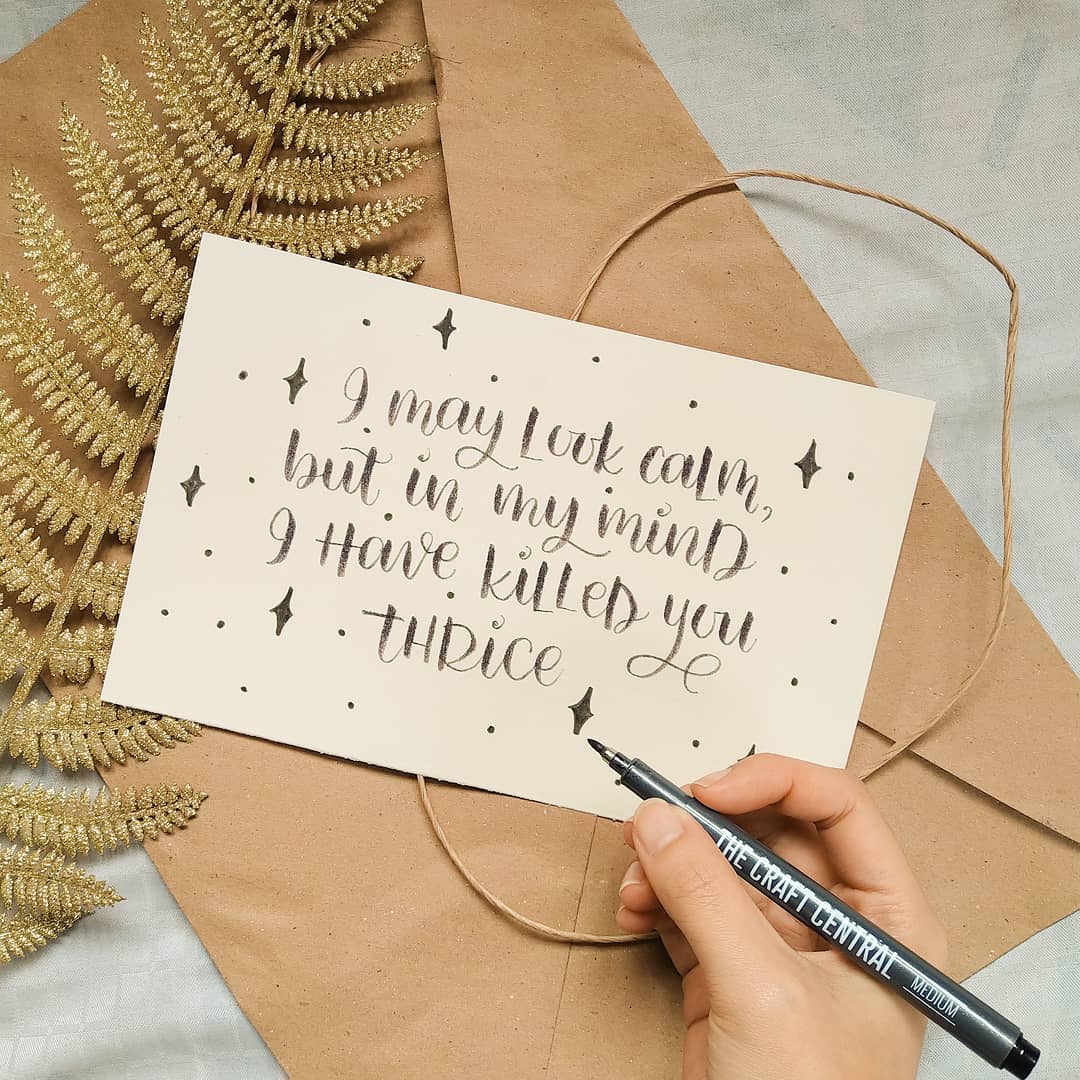 I may Look calm,
but in my mind
I Have killed you
THRice
THE CRAFT CENTRAL
MEDIUM